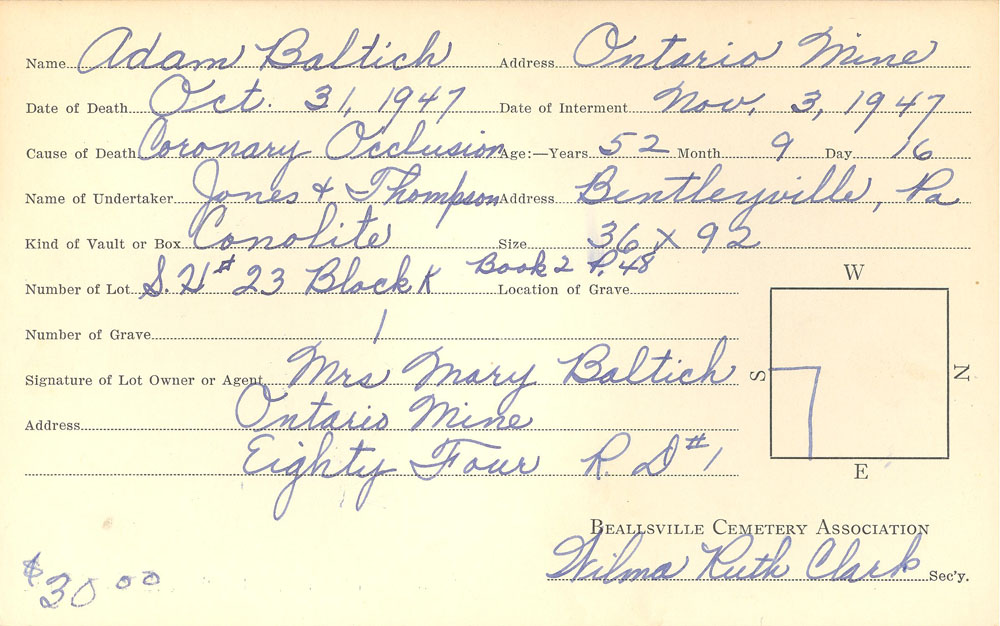 Name Adam Baltich Address Ontario Mine
Date of Death Oct. 31, 1947 Date of Interment Nov. 3, 1947
Cause of Death Coronary Occlusion Age:—Years 52 Month 9 Day 16
Name of Undertaker Jones & Thompson Address Bentleyville, Pa
Kind of Vault or Box Conolite Size 36 x 92
Number of Lot S. H # 23 Block K Book 2 P. 48 Location of Grave
W
Number of Grave 1
Signature of Lot Owner or Agent Mrs Mary Baltich
S N
Address Ontario Mine
Eighty Four R. D #1
E
Beallsville Cemetery Association
Wilma Ruth Clark Sec'y.
$30 00